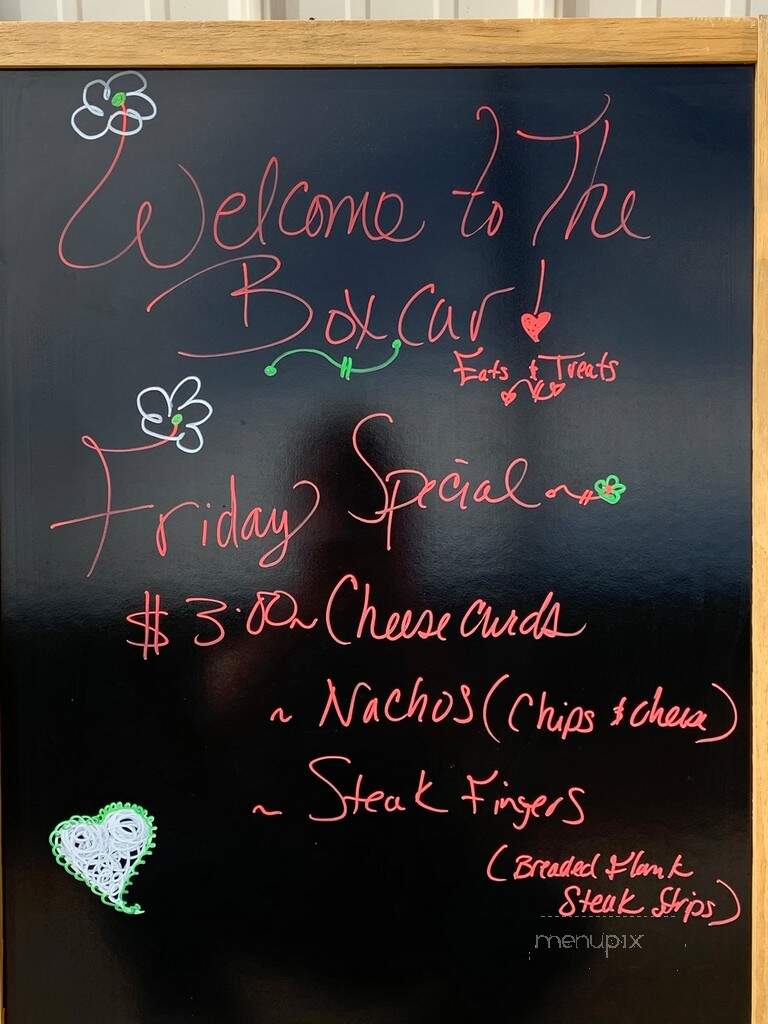 Welcome to The
Boxcar!
Eats & Treats
Friday Special ~
$3.00 ~ Cheese curds
~ Nachos (Chips & cheese)
~ Steak Fingers
(Breaded Flank
Steak Strips)
menupix